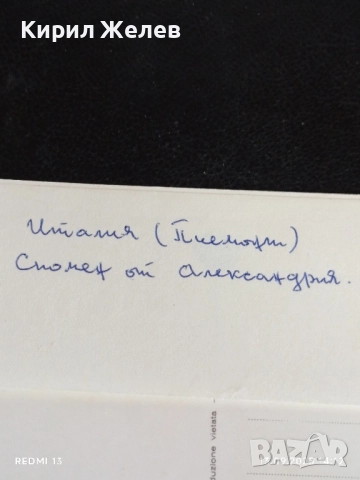 Кирил Желев
Италия (Пиемонт)
Спомен от Александрия.
duzione vietata
REDMI 13
BAZAR